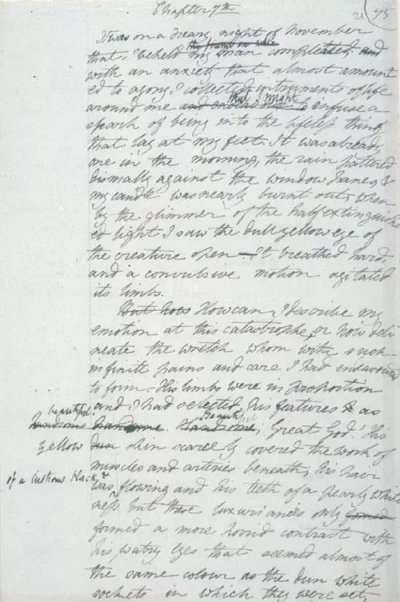 Chapter 7th
75
It was on a dreary night of November
the frame on which
that I beheld my man completed, and
with an anxiety that almost amount
ed to agony, I collected instruments of life
that I might
around me and endeavour to infuse a
spark of being into the lifeless thing
that lay at my feet. It was already
one in the morning, the rain pattered
dismally against the window panes, &
my candle was nearly burnt out, when
by the glimmer of the half extinguish
ed light I saw the dull yellow eye of
the creature open — It breathed hard
and a convulsive motion agitated
its limbs.
But how How can I describe my
emotion at this catastrophe, or how deli
neate the wretch whom with such
infinite pains and care I had endeavoured
to form. His limbs were in proportion
and I had selected his features as
beautiful
handsome handsome. Handsome; Great God! His
Beautiful
yellow dun skin scarcely covered the work of
muscles and arteries beneath; his hair
of a lustrous black, &
was flowing and his teeth of a pearly white
ness but these luxuriances only formed
formed a more horrid contrast with
his watry eyes that seemed almost of
the same colour as the dun white
sockets in which they were set,